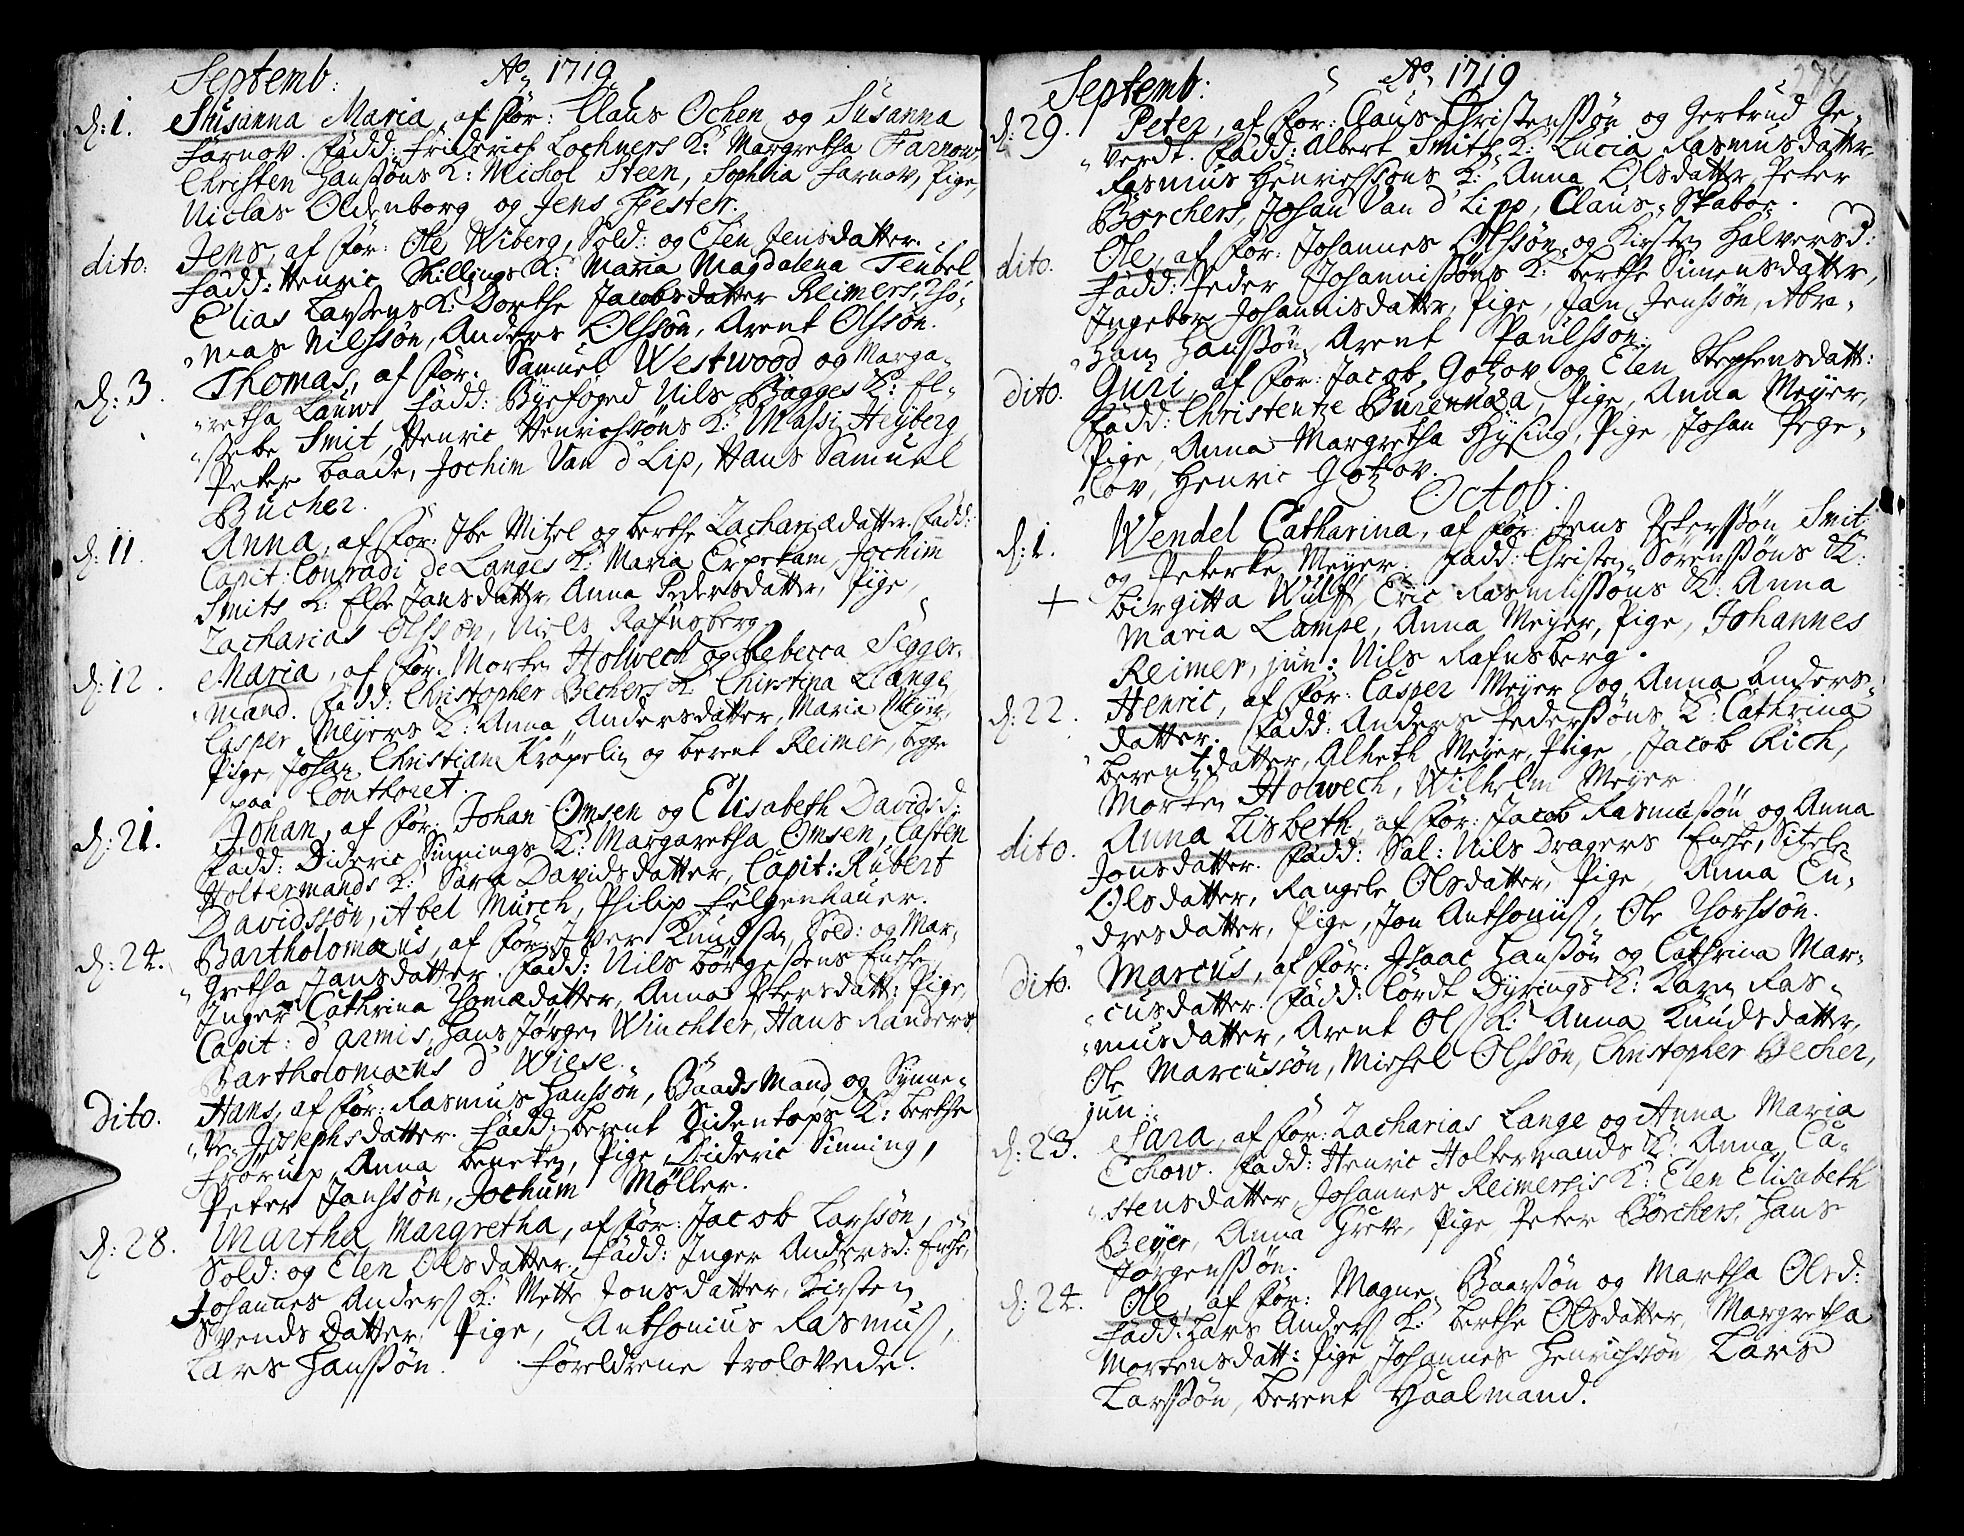 Septemb: Ao 1719
d: 1. Susanna Maria, af For: Claus Ochen og Susanna
Farnov. Fadd: Friderich Lochners K: Margretha Farnow,
Christen Hanssøns K: Michol Steen, Sophia Farnov, Pige,
Niclas Oldenborg og Jens Fester.
dito: Jens, af For: Ole Wiberg, Sold: og Elen Jensdatter.
Fadd: Henric Skillings K: Maria Magdalena Teubel
Elias Larsens K: Dorthe Jacobsdatter Reimers, Tho-
mas Nilssøn, Anders Olssøn, Arent Olssøn.
d: 3. Thomas, af For: Samuel Westwood og Marga-
retha Lauw. Fadd: Byefoged Nils Bagges K: El-
sebe Smit, Henric Henrichsøns K: Massi Heyberg,
Peter Baade, Jochim Van d' Lip, Hans Samuel
Bücher.
d: 11. Anna, af For: Ibe Mitzel og Berthe Zachariædatter. Fadd:
Capit: Conradi de Langes K: Maria Erpekam, Jochim
Smits K: Else Jansdatter, Anna Pedersdatter, Pige,
Zacharias Olsson, Niels Rafnsberg.
d: 12. Maria, af For: Morten Holwech og Rebecca Segger-
mand. Fadd: Christopher Bechers K: Christina Lange,
Casper Meyers K: Anna Andersdatter, Maria Meyer,
Pige, Johan Christian Kröpelin og Berent Reimer, begge
paa Conthoret.
d: 21. Johan, af For: Johan Omsen og Elisabeth Davidsd:
Fadd: Dideric Sinnings K: Margaretha Omsen, Casten
Holtermands K: Sara Davidsdatter, Capit: Rubert
Davidssøn, Abel Murch, Philip Felgenhauer.
d: 24. Bartholomæus, af For: Iver Knudsen, Sold: og Mar-
gretha Jansdatter. Fadd: Nils Börgesens Enche,
Inger Cathrina Thomædatter, Anna Petersdatt: Pige,
Capit: d' armis, Hans Jørgen Winchler, Hans Randers,
Bartholomæus d' Wiese.
Dito. Hans, af For: Rasmus Hanssøn, Baads Mand og Synne-
ve Josephsdatter. Fadd: Berent Sidentops K: Berthe
Frörup, Anna Beneken, Pige, Dideric Sinning,
Peter Janssøn, Jochum Møller.
d: 28. Martha Margretha, af For: Jacob Larssøn,
Sold: og Elen Olsdatter. Fadd: Inger Andersd: Enche,
Johannes Anders K: Mette Jonsdatter, Kirsten
Svends Datter, Pige, Anthonius Rasmus,
Lars Hanssøn. Forældrene trolovede.
Septemb: Ao 1719 274
d: 29. Peter, af For: Claus Christenssøn og Gertrud Ge-
verdt. Fadd: Albert Smits K: Lucia Rasmusdatter,
Rasmus Henrichssøns K: Anna Olsdatter, Peter
Borchers, Johan Van d' Lipp, Claus Skabor.
dito. Ole, af For: Johannes Olssøn og Kirsten Halversd:
Fadd: Peder Johannissøns K: Berthe Simensdatter,
Ingebor Johannisdatter, Pige, Jan Jenssøn, Abra-
ham Hanssøn, Arent Paulssøn.
dito. Guri, af For: Jacob Gotzov og Elen Stephensdatt:
Fadd: Christentze Burennæa, Pige, Anna Meyer,
Pige, Anna Margretha Hysing, Pige, Johan Pege-
lov, Henric Gotzov.
Octob:
d: 1. Wendel Catharina, af For: Jens Peterssøn Smit
og Peterke Meyer. Fadd: Christen Sørenssøns K:
+ Birgitta Wulff, Eric Rasmussøns K: Anna
Maria Lampe, Anna Meyer, Pige, Johannes
Reimer, jun: Nils Rafnsberg.
d: 22. Henric, af For: Casper Meyer og Anna Anders-
datter. Fadd: Anders Pederssøns K: Cathrina
Berentzdatter, Alheth Meyer, Pige, Jacob Rich,
Morten Holwech, Wilhelm Meyer.
dito. Anna Lisbeth, af For: Jacob Rasmussøn og Anna
Jonsdatter. Fadd: Sal: Nils Dragers Enche, Sitzele
Olsdatter, Rangele Olsdatter, Pige, Anna En-
dresdatter, Pige, Jon Anthonius, Ole Thorssøn.
dito. Marcus, af For: Isaac Hanssøn og Cathrina Mar-
cusdatter. Fadd: Cordt Dyrings K: Karen Ras-
musdatter, Arent Ols K: Anna Knudsdatter,
Ole Marcussøn, Michel Olssøn, Christopher Becher,
jun:
d: 23. Sara, af For: Zacharias Lange og Anna Maria
Echow. Fadd: Henric Holtermands K: Anna Ca-
stensdatter, Johannes Reimersis K: Elen Elisabeth
Beyer, Anna Grev, Pige, Peter Børchers, Hans
Jørgenssøn.
d: 24. Ole, af For: Magne Baarssøn og Martha Olsd:
Fadd: Lars Anders K: Berthe Olsdatter, Margretha
Mortensdatt: Pige, Johannes Henrichssøn, Lars
Larssøn, Berent Haalmand.